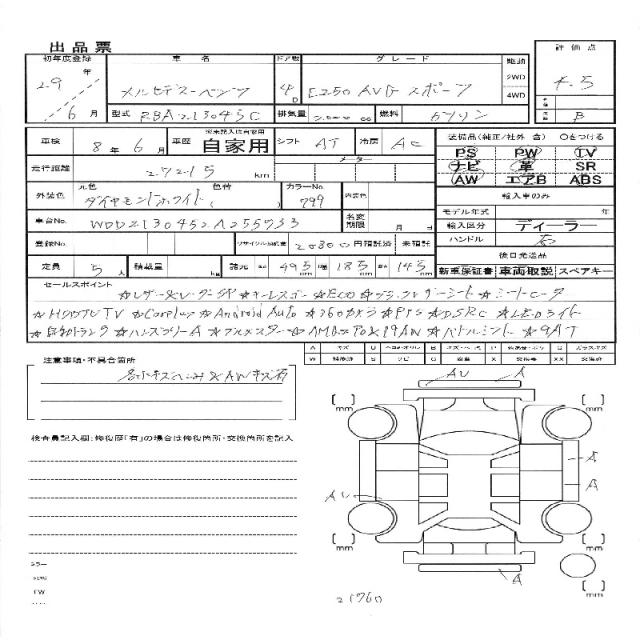 出品票
初年度登録 車名 ドア数 グレード 駆動 評価点
29年 メルセデスベンツ 4D E250 AVG スポーツ 2WD 4WD 4.5
6月 型式 RBA213045C 排気量 燃料 ガソリン B
車検 8年6月 車歴 自家用 シフト AT 冷房 AC 装備品(純正/社外 含) 〇をつける
PS PW TV
走行距離 27215 km メーター ナビ 革 SR
AW エアB ABS
外装色 元色 ダイヤモンドホワイト 色替 ( ) カラーNo. 799 内装色 輸入車のみ
モデル年式 年
車台No. WDD2130452A255733 名変期限 月 日 輸入区分 ディーラー
登録No. リサイクル預託金 円預託済 未預託 ハンドル 右
後日発送品
定員 5人 積載量 kg 諸元 495 185 145 新車保証書 車両取説 スペアキー
セールスポイント
☆レザー ☆レーダーS/P ☆キーレスゴー ☆ECO ☆ブラックレザーシート ☆シートヒータ
☆HDDナビTV ☆CarPlay ☆Android Auto ☆360°カメラ ☆PTS ☆DSRC ☆LEDライト
☆自動トランク ☆ハンズフリーA ☆ブルメスター ☆AMGエアロ&19AW ☆パドルシフト ☆9AT
注意事項・不具合箇所
各小キズヘコミ&AWキズ有
検査員記入欄:修復歴「有」の場合は修復箇所・交換箇所を記入
AU A
mm mm
A
A
AU
mm mm
A
mm
21760